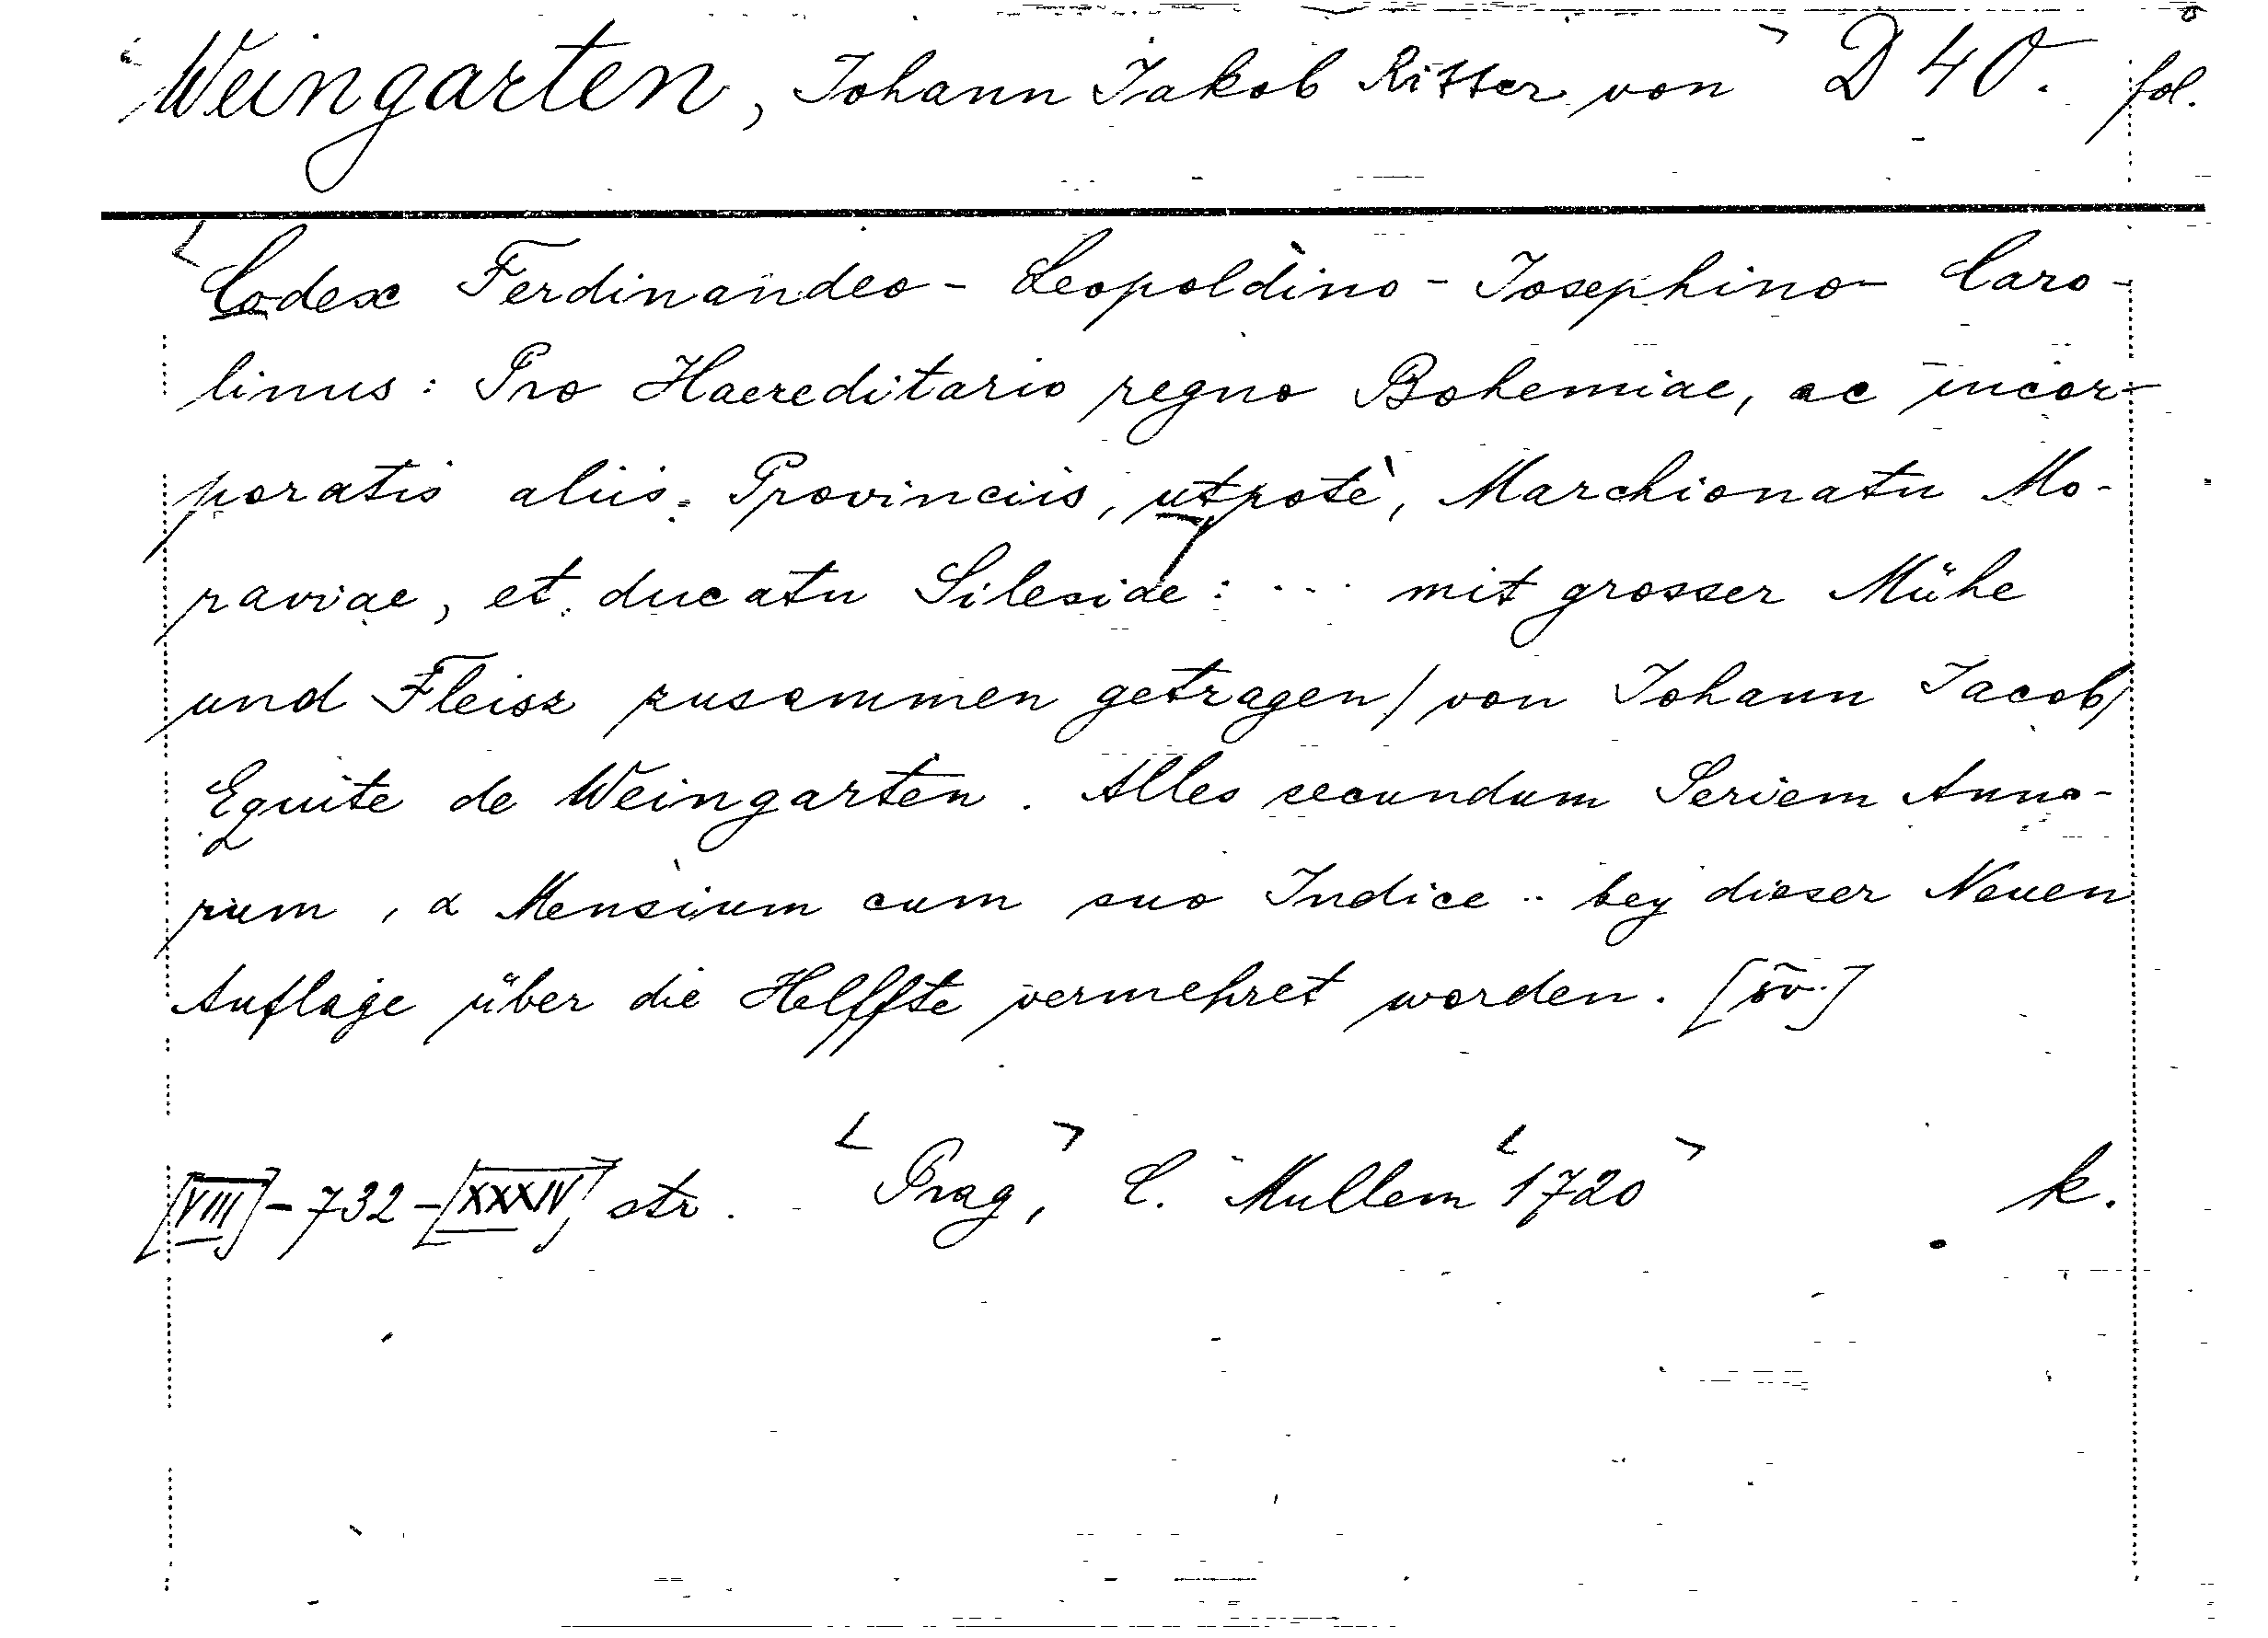 Weingarten, Johann Jakob Ritter von D 40. fol.
Codex Ferdinandeo-Leopoldino-Josephino-Caro-
linus: Pro Haereditario regno Bohemiae, ac incor-
poratis aliis Provinciis, utpotè, Marchionatu Mo-
raviae, et ducatu Silesiae: ... mit grosser Mühe
und Fleisz zusammen getragen / von Johann Jacob
Equite de Weingarten. Alles secundum Seriem Anno-
rum, & Mensium cum suo Indice .. bey dieser Neuen
Auflage über die Helffte vermehret worden.
[VIII]-732-[XXXIV] str. Prag, C. Mullem 1720 k.